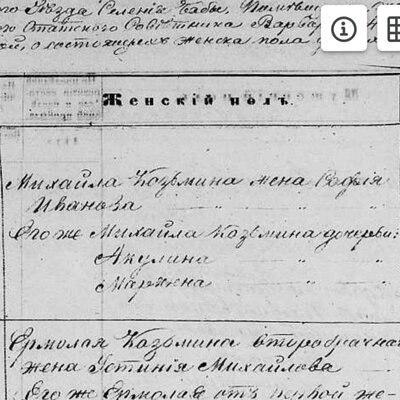 го Уезда Селенія Бабы, Помещи
го Статскаго Совѣтника Варвар
ой, о состоящихъ женска пола
Женскій полъ.
Михайла Козьмина жена Софья
Иванова
Его же Михайла Козьмина дочери:
Акулина
Марѫна
Ермолая Козьмина второбрачная
жена Устинія Михайлова
Его же Ермолая отъ первой же-